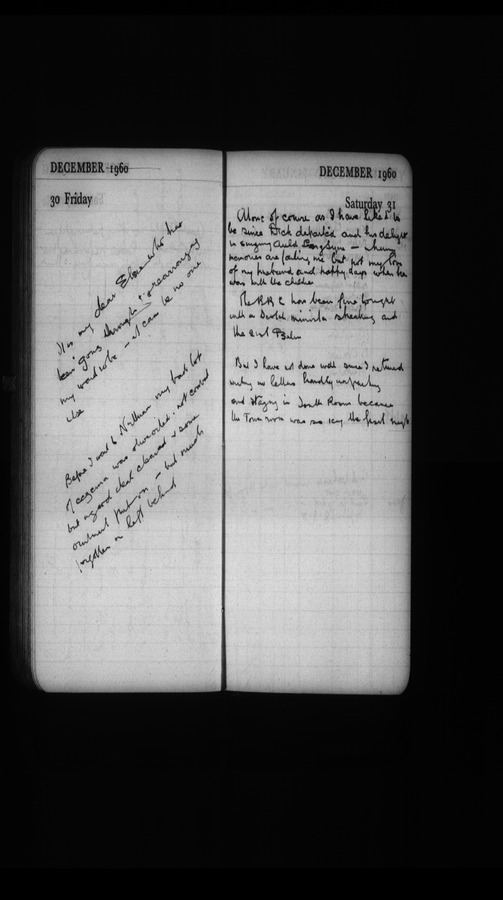 DECEMBER 1960
30 Friday
It is my dear Elsewho has
been going through & rearranging
my wardrobe – it can be no one
else
Before I went to my bad lot
of eczema was – not cured
but a good deal cleared & some
ointment put on – but much
forgotten or left behind
DECEMBER 1960
Saturday 31
Alone of course as I have liked to
be since Dick departed and his delight
in singing Auld Lang Syne –
memories are failing me but not my love
of my husband and happy days when he
was with the
The B.B.C has been fine tonight
with a Scotch minister speaking and
the 21st Psalm
But I have not done well since I returned
writing no letters hardly unpacking
and staying in South Room because
the room was so icy the first night